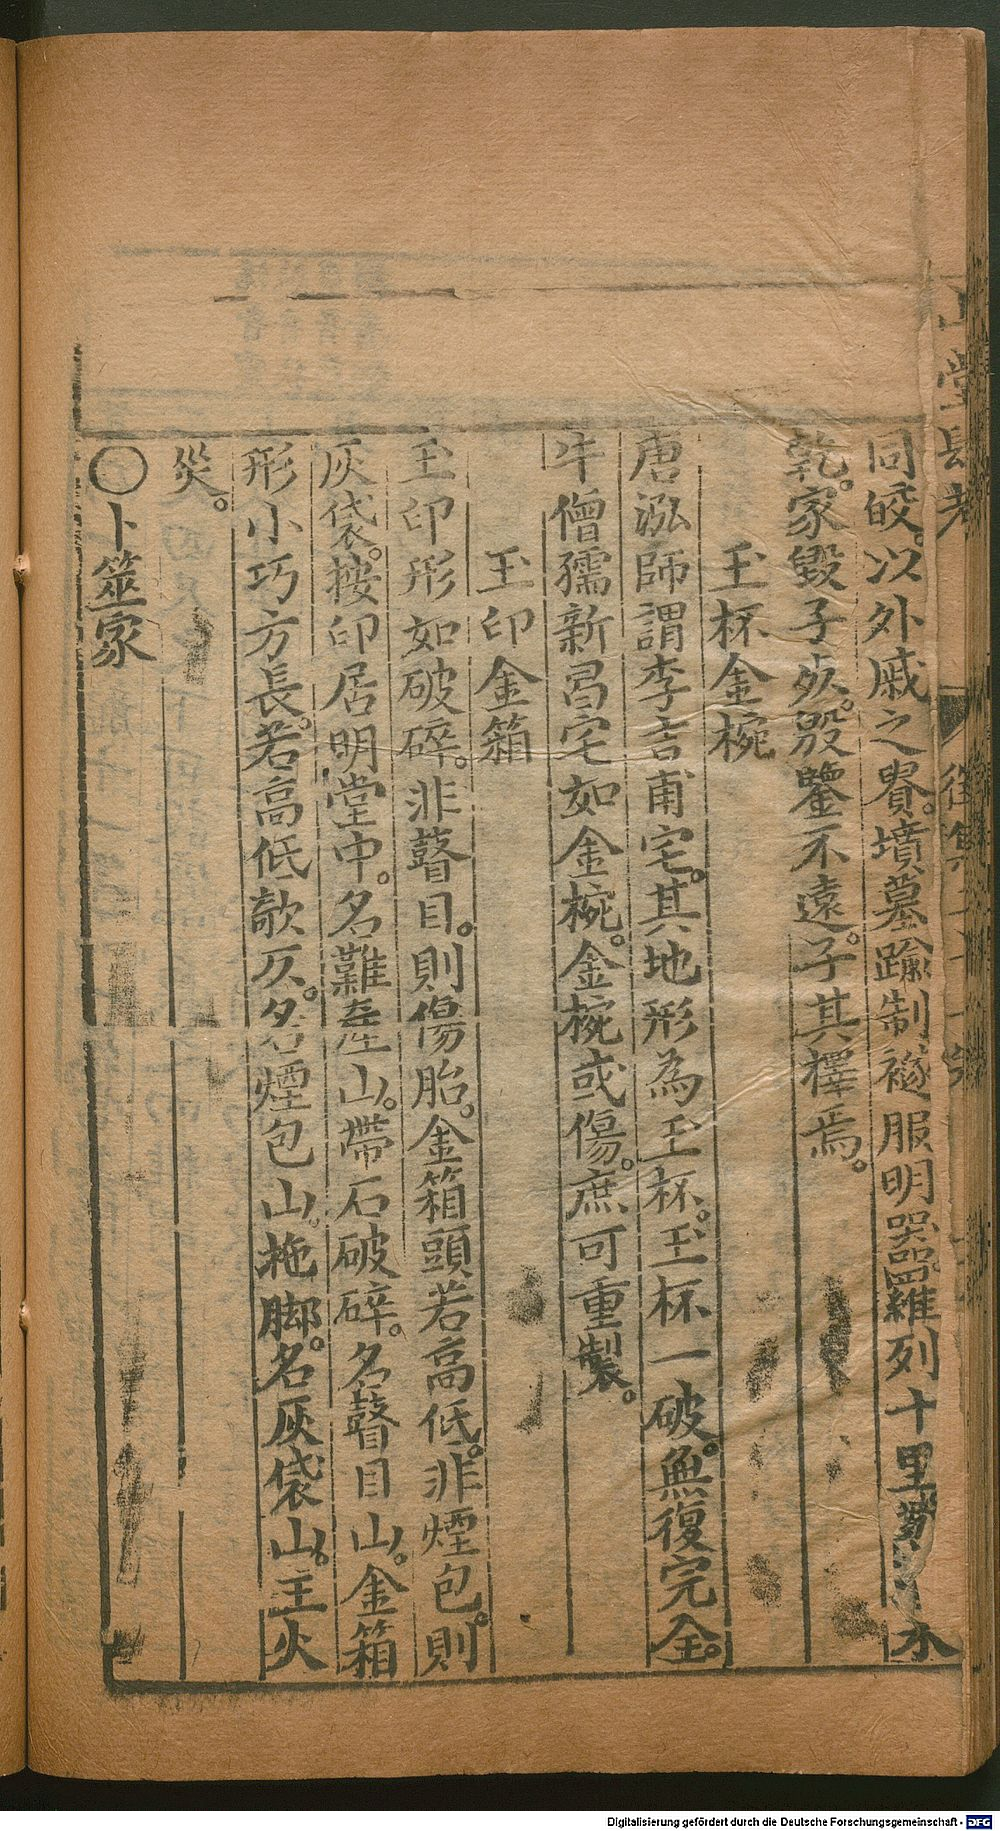 同皎。以外戚之貴。墳墓踰制。襚服明器羅列十里黃水
乾。家毀子死。殷鑒不遠。子其擇焉。
玉杯金椀
唐泓師謂李吉甫宅。其地形為玉杯。玉杯一破。無復完全。
牛僧孺新昌宅如金椀。金椀或傷。庶可重製。
玉印金箱
玉印形如破碎。非瞽目。則傷胎。金箱頭若高低。非煙包。則
灰袋。按印居明堂中。名難產山。帶石破碎。名瞽目山。金箱
形小巧方長。若高低欹仄。名煙包山。拖脚。名灰袋山。主火
災。
○卜筮家
Digitalisierung gefördert durch die Deutsche Forschungsgemeinschaft - DFG